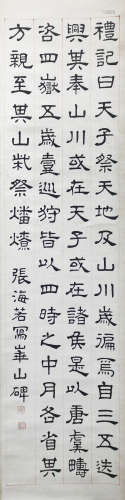 禮記曰天子祭天地及山川歲徧焉自三五迭
興其奉山川或在天子或在諸侯是以唐虞疇
咨四嶽五歲壹巡狩皆以四時之中月各省其
方親至其山柴祭燔燎 張海若寫華山碑